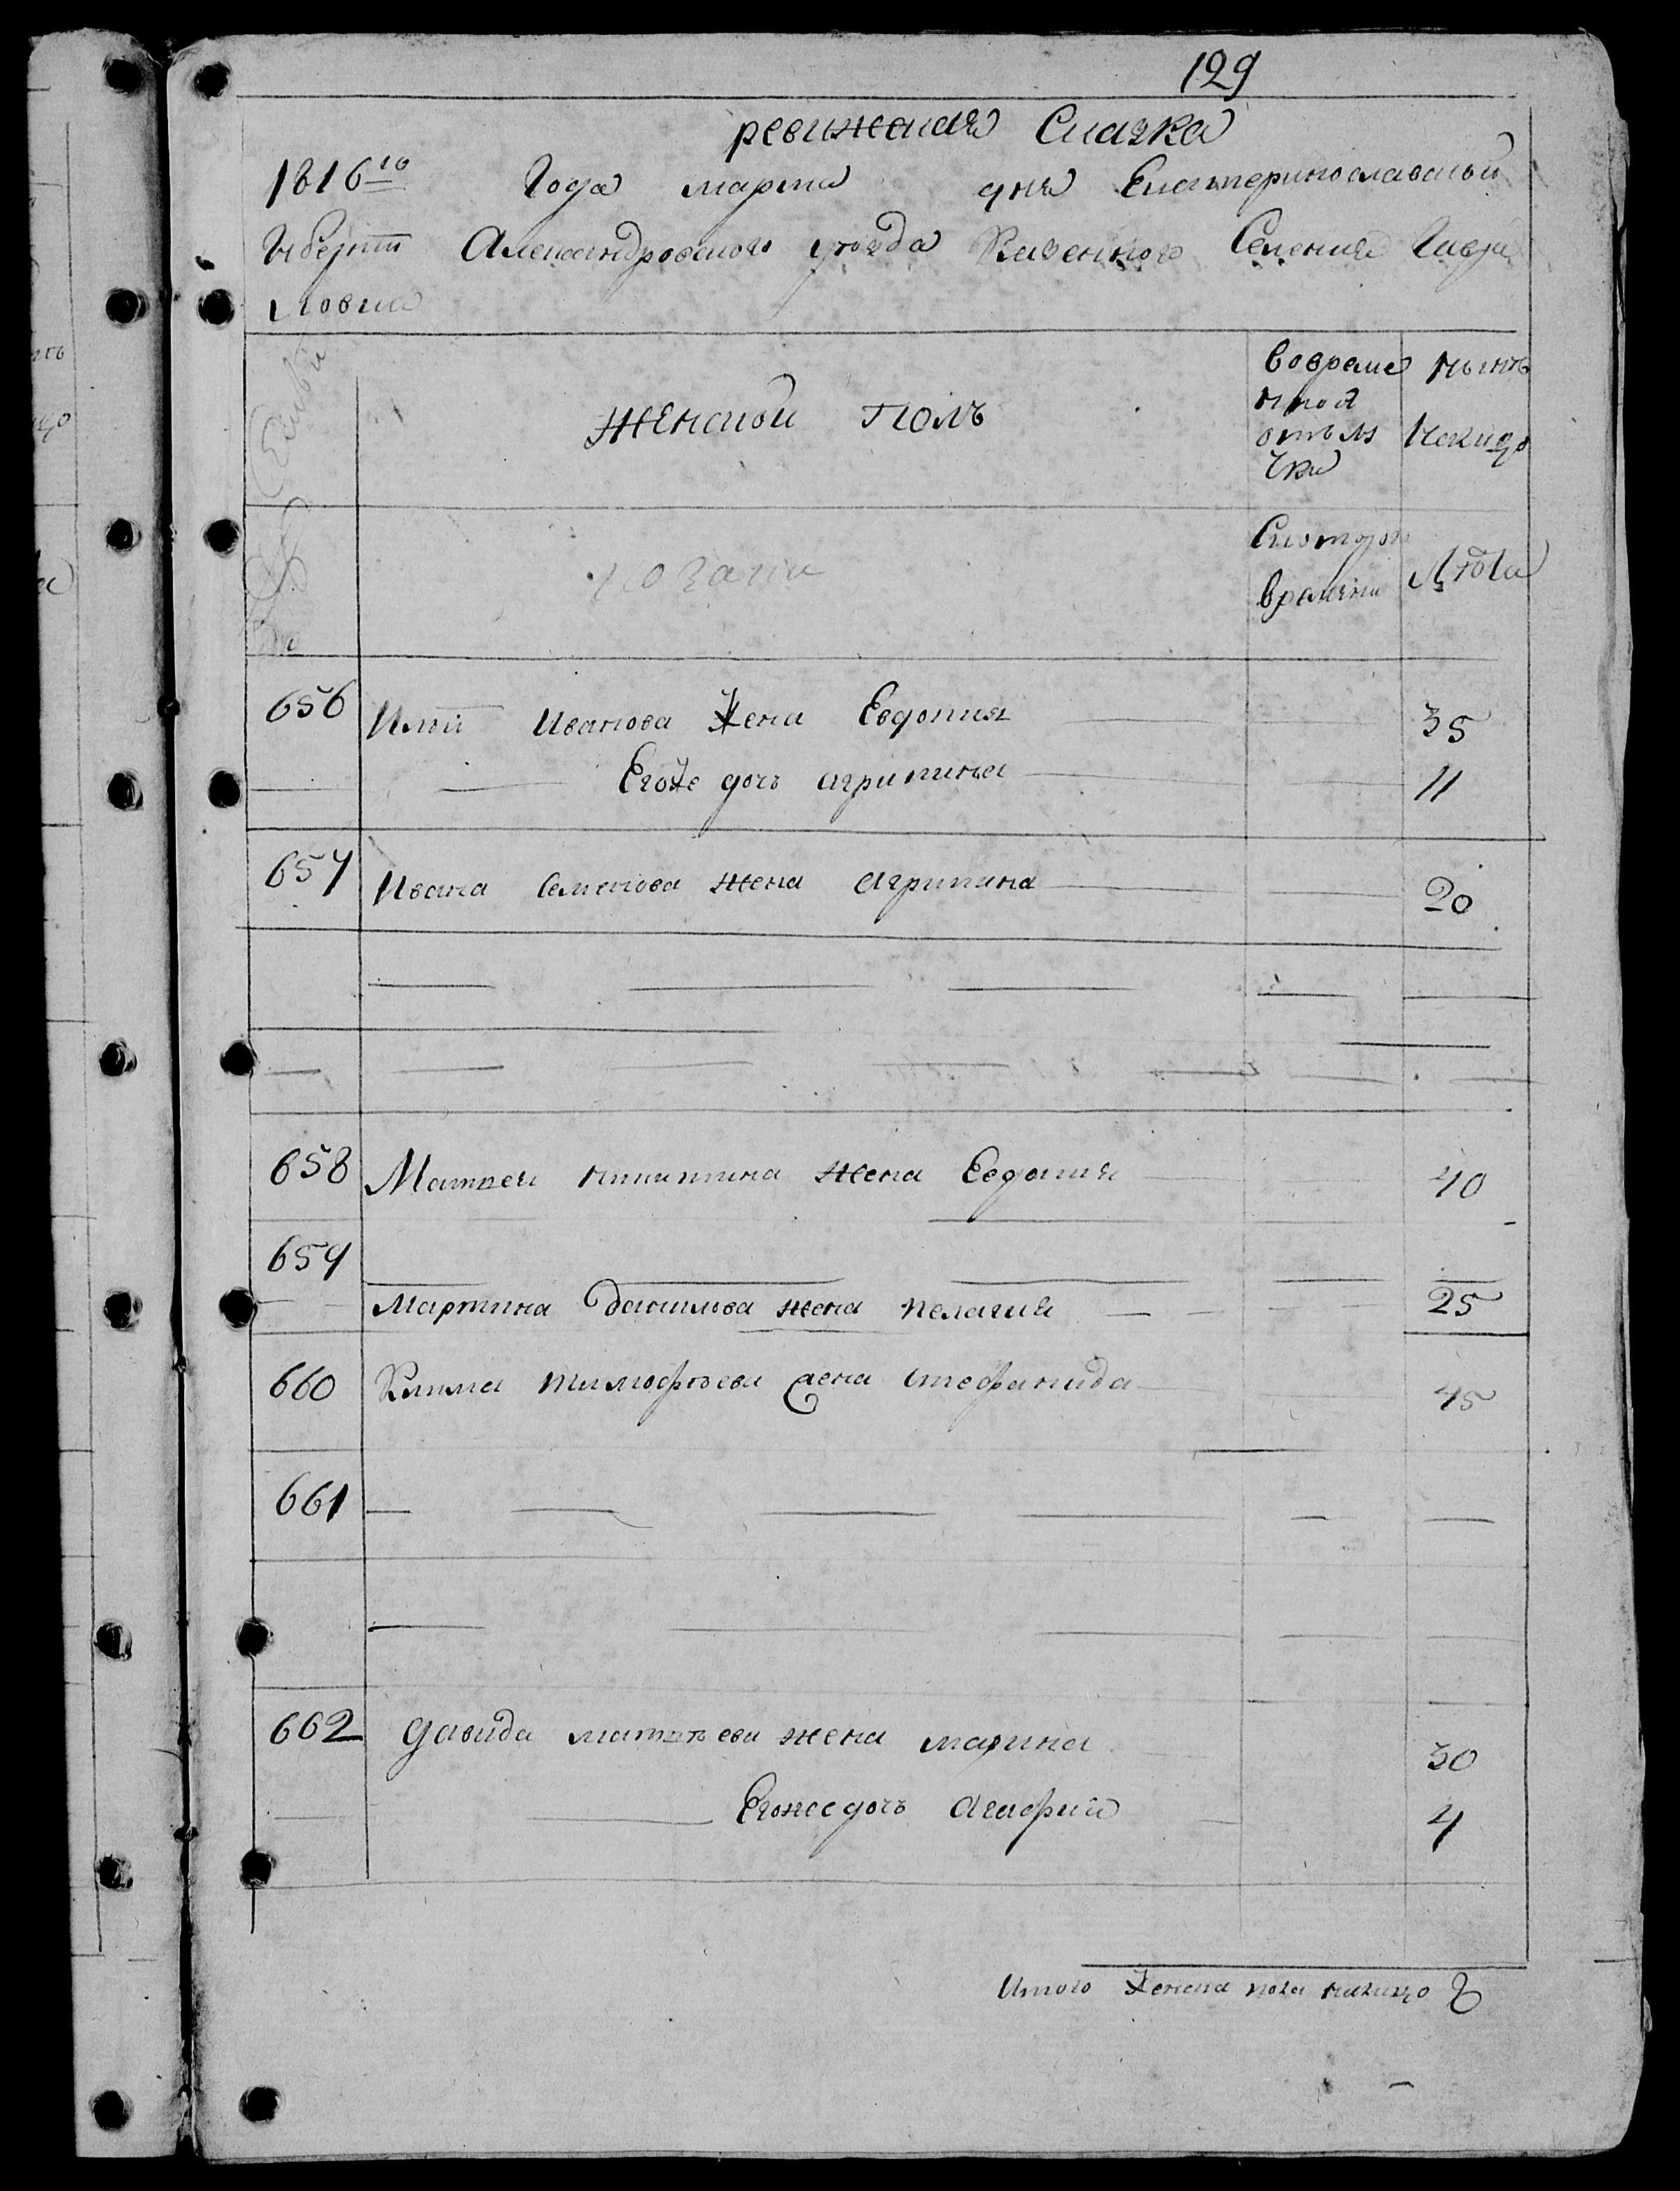 129
ревижская Сказка
1816го Года марта дня Екатеринославской
Губерніи Александровского уѣзда Казенного Селения Гаври
ловки
Семьи
женской полъ
вовреме
нной
отълу
чки
нынѣ
Налицо
козачки
Скоторого
времени
Лѣта
656 Ильи Иванова жена Евдокия 35
Егоже дочь агрипина 11
657 Ивана Семенова жена агрипина 20
658 Матвея никитина жена Евдокия 40
659
Мартина данилова жена пелагия 25
660 Клима тимофѣева жена стефанида 45
661
662 давида матвѣева жена марина 30
Егоже дочь Агафия 4
Итого женска пола налицо 8